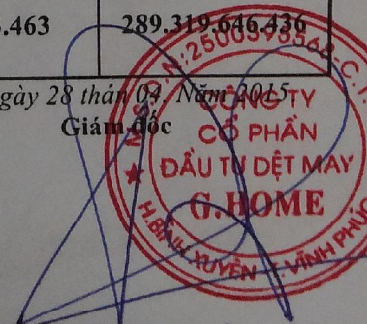 .463 289.319.646.436
gày 28 thán 04. Năm 2015
Giám đốc
CÔNG TY
CỔ PHẦN
ĐẦU TƯ DỆT MAY
G.HOME
H.BÌNH XUYÊN - T.VĨNH PHÚC